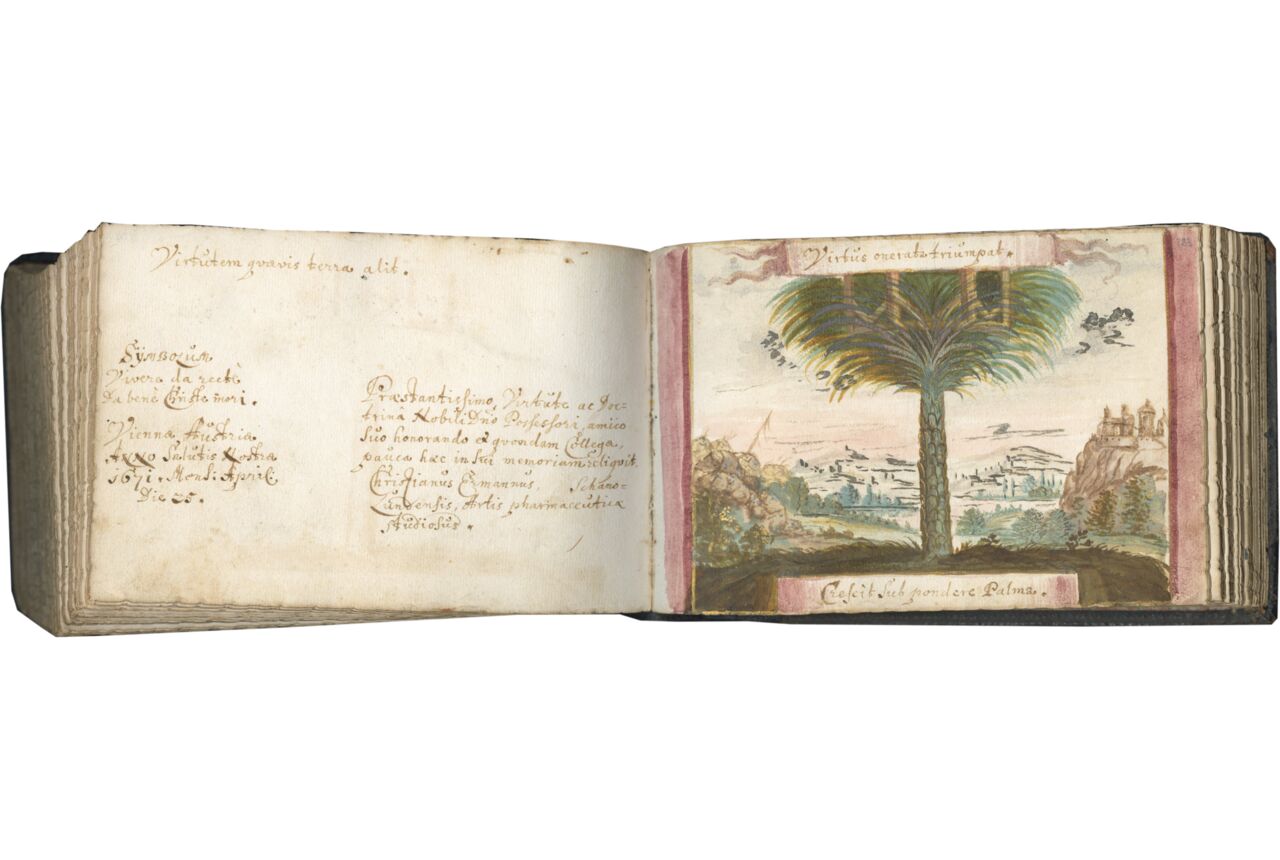 Virtutem quævis terra alit.
Symbolum
Vivere da rectè
Da benè Christe mori.
Vienna Austriæ
Anno Salutis Nostræ
1671. Mensi: April:
Die 25.
Præstantissimo, Virtute ac Doc-
trinâ Nobili Dño Possessori, amico
suo honorando et quondam Collegæ,
pauca hæc in sui memoriam reliquit
Christianus Ermannus,
Artis pharmaceuticæ
studiosus.
Virtus onerata triumpat.
Crescit sub pondere Palma.